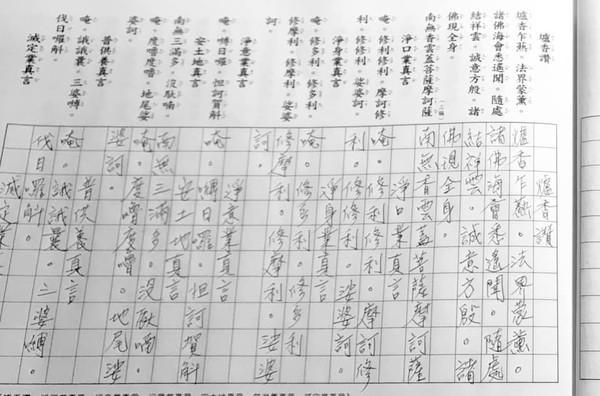 爐香讚
爐香乍爇。法界蒙薰。
諸佛海會悉遙聞。隨處
結祥雲。誠意方殷。諸
佛現全身。
南無香雲蓋菩薩摩訶薩
淨口業真言
唵。修利修利。摩訶修
利。修修利。娑婆訶
淨身業真言
唵。修多利。修多利。
修摩利。修摩利。娑婆
訶。
淨意業真言
唵。嚩日囉。怛訶賀斛
安土地真言
南無三滿多。沒馱喃。
唵。度嚕度嚕。地尾娑
婆訶
普供養真言
唵。誐誐曩。三婆嚩。
伐日囉斛
滅定業真言
爐香讚
爐香乍爇。法界蒙薰。
諸佛海會悉遙聞。隨處
結祥雲。誠意方殷。諸
佛現全身。
南無香雲蓋菩薩摩訶薩
淨口業真言
唵。修利修利。摩訶修
利。修修利。娑婆訶
淨身業真言
唵。修多利。修多利
修摩利。修摩利。娑婆
訶
淨意業真言
唵。嚩日囉。怛訶賀斛
安土地真言
南無三滿多。沒馱喃
唵。度嚕度嚕。地尾娑
婆訶
普供養真言
唵。誐誐曩。三婆嚩
伐日囉斛。
滅定業